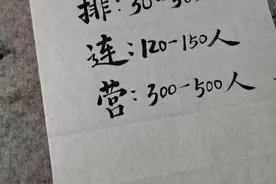 排：30-50
连：120-150人
营：300-500人